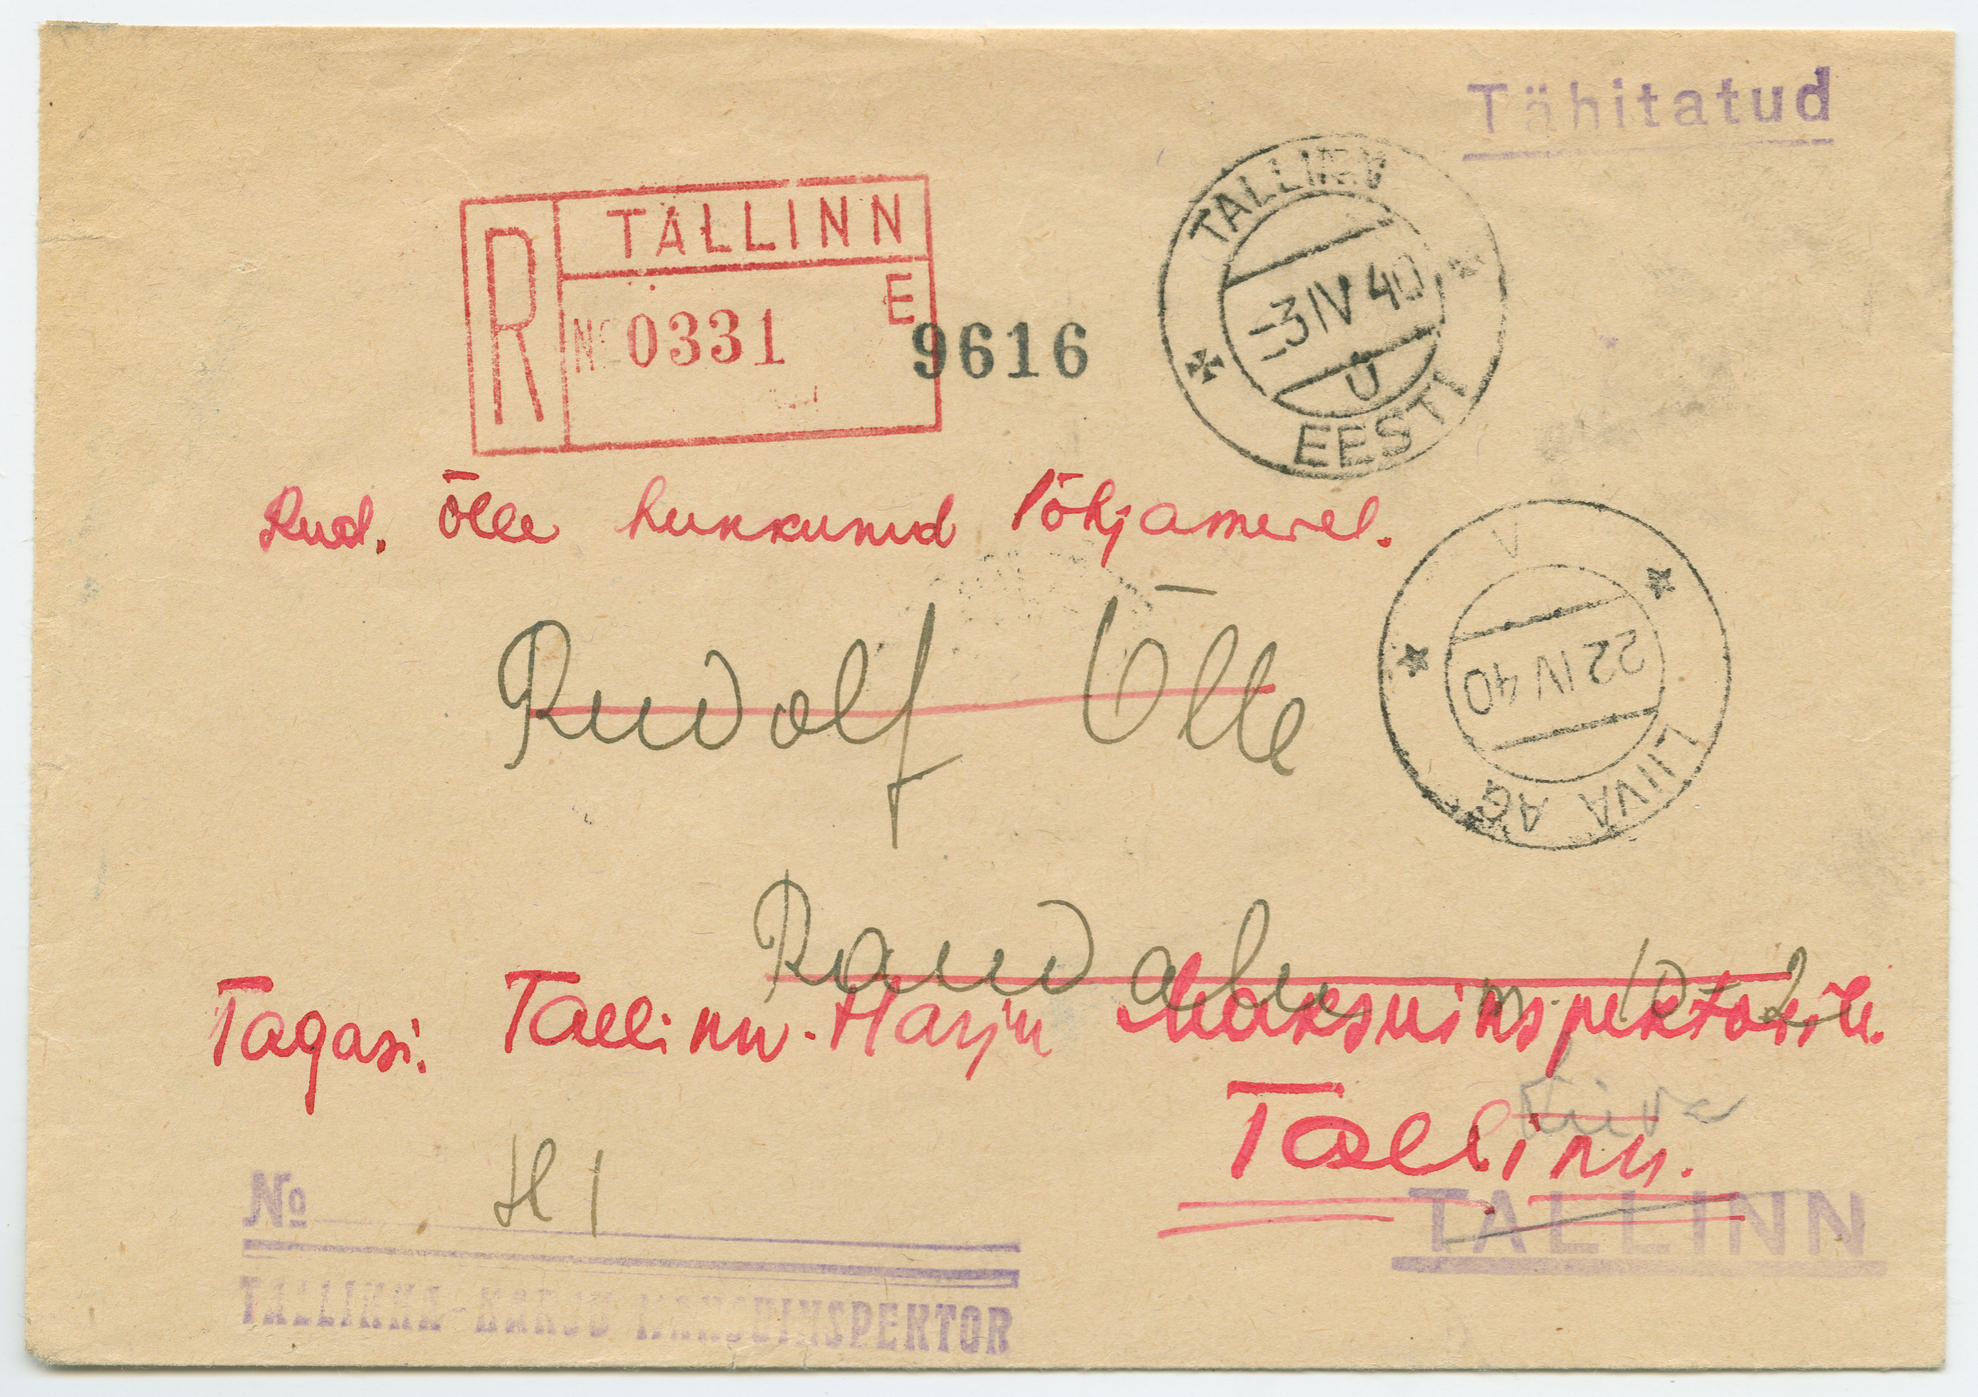 Tähitatud
R TALLINN
E
№ 0331
9616
TALLINN
-3 IV 40
U
EESTI
Rud. Õlle hukkunud Põhjamerel.
V
22 IV 40
LIIVA AG
Rudolf Õlle
Tagasi. Tallinn-Harju Maksuinspektorile.
Liiva
Tallinn.
H 1
№
TALLINN
TALLINNA-HARJU MAKSUINSPEKTOR